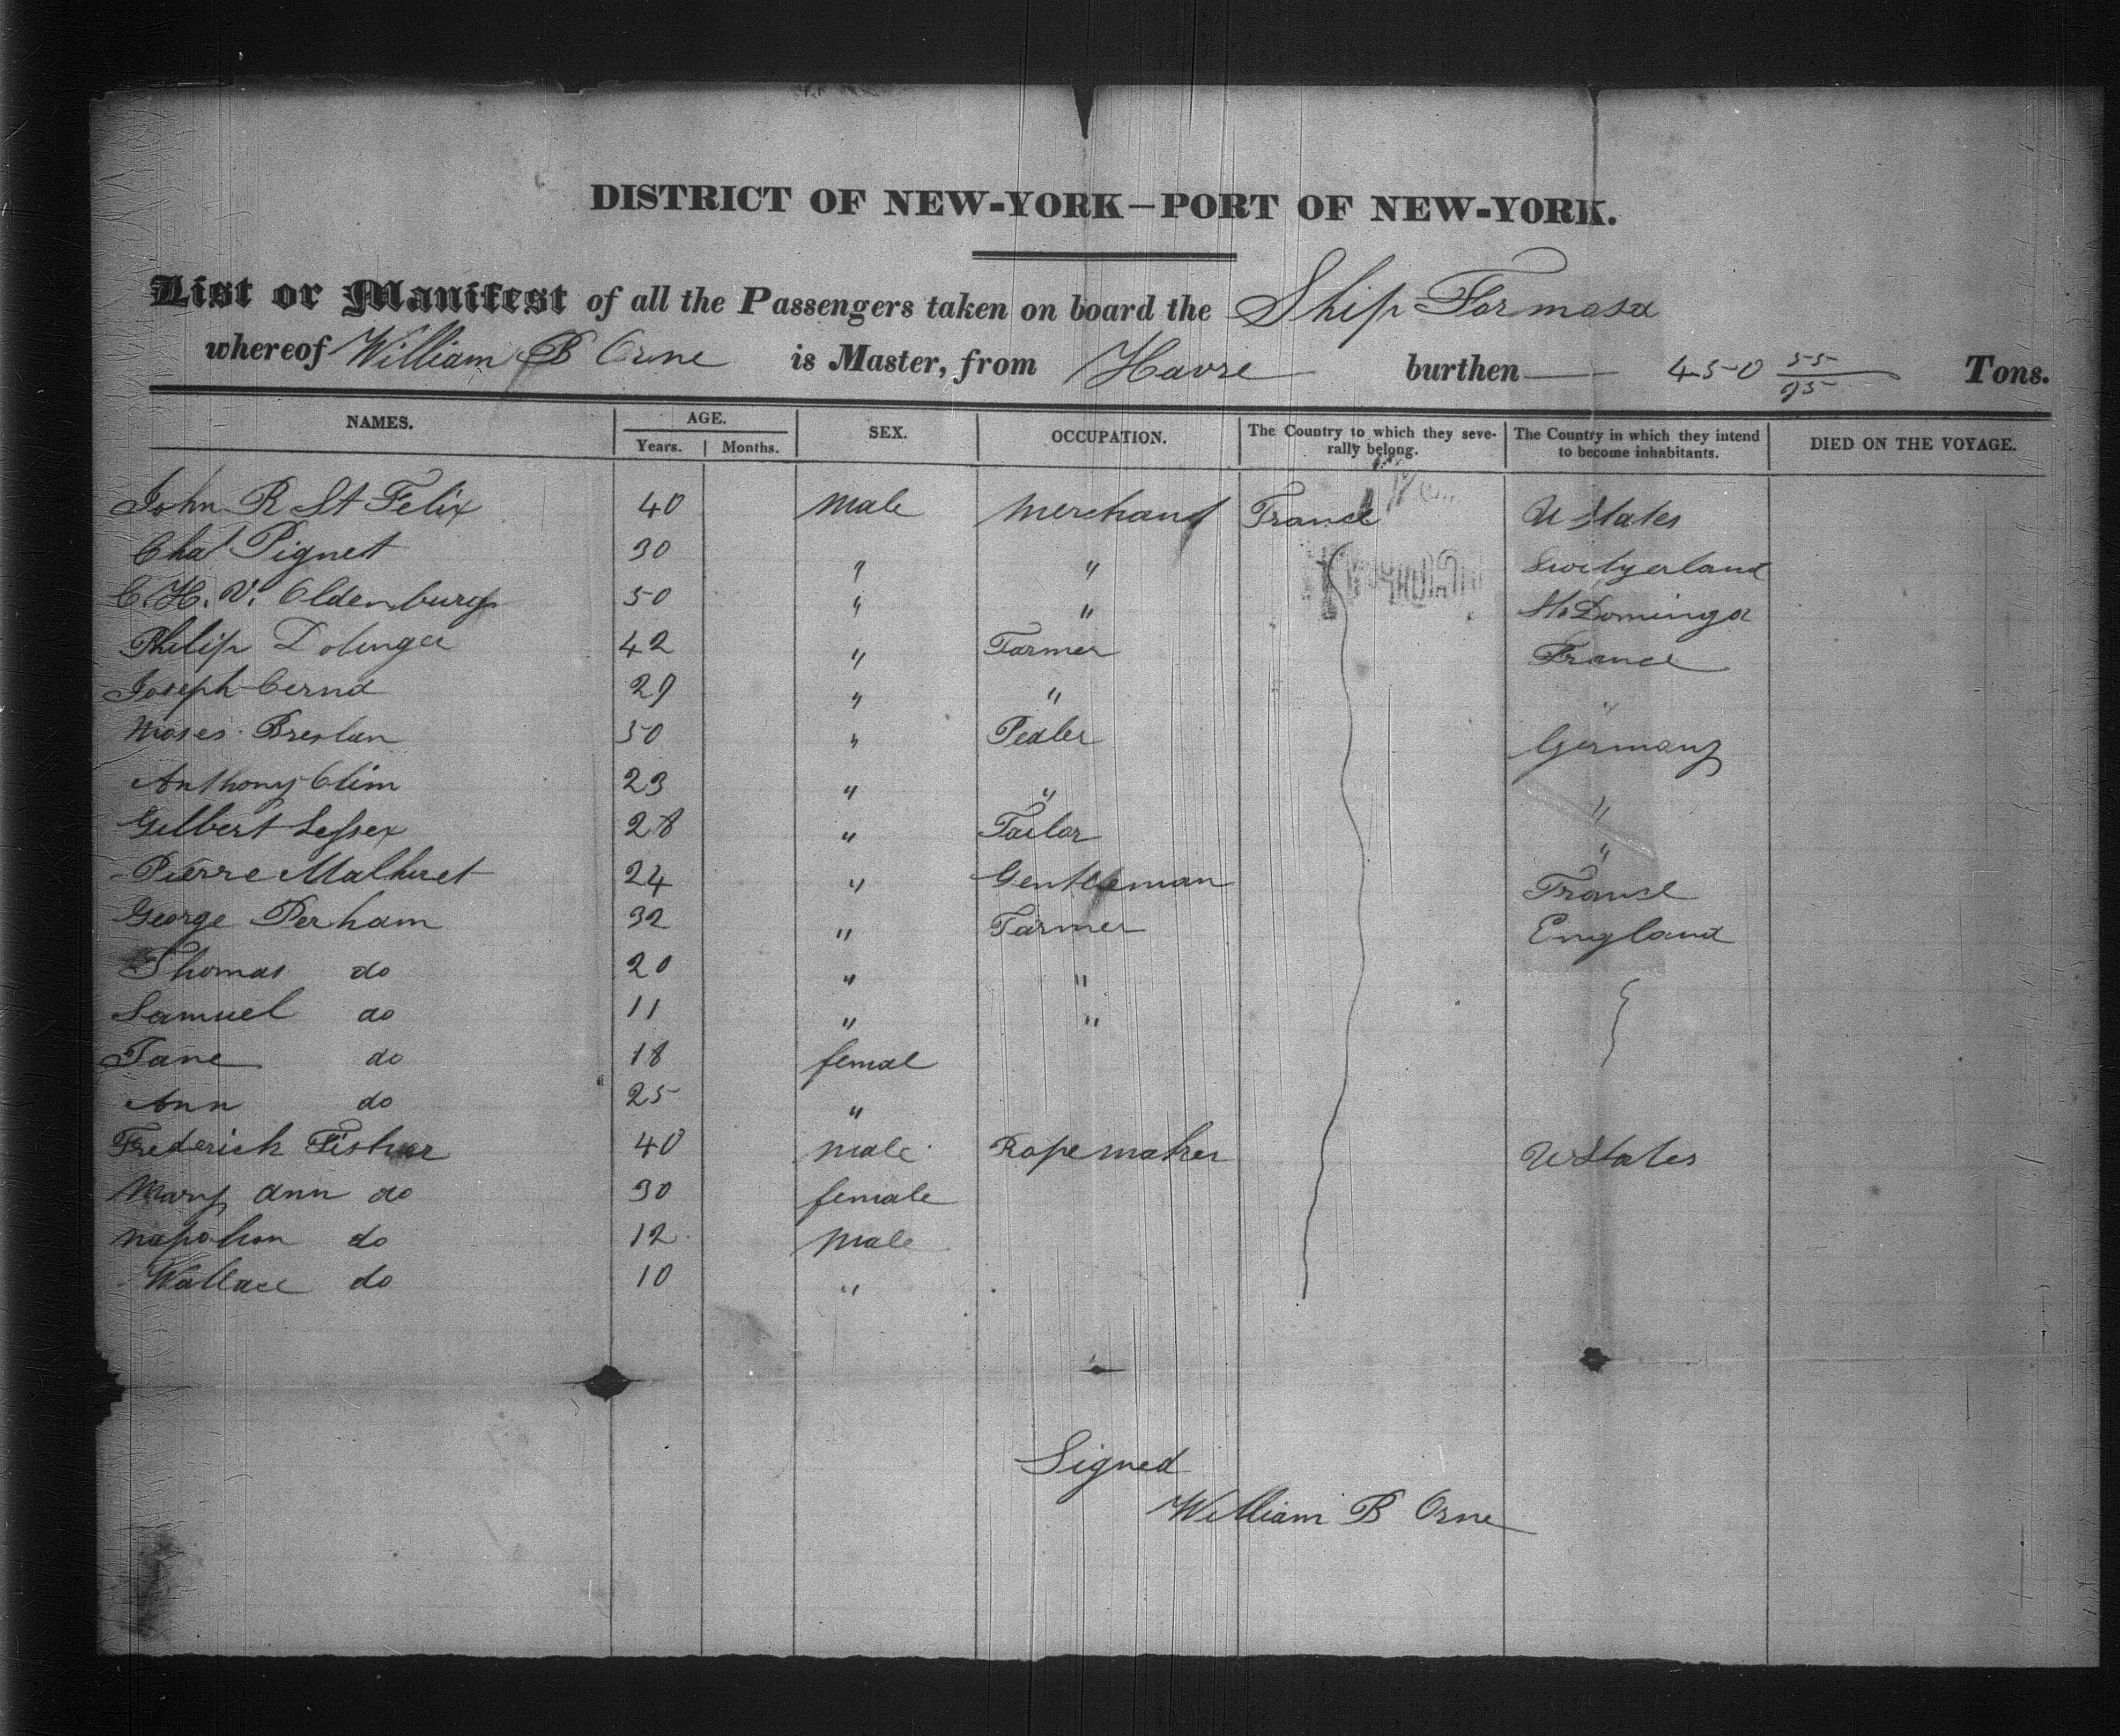 DISTRICT OF NEW-YORK—PORT OF NEW-YORK.
List or Manifest of all the Passengers taken on board the Ship Formosa
whereof William B Orne is Master, from Havre burthen 450 55/95 Tons.
NAMES. AGE. SEX. OCCUPATION. The Country to which they seve- The Country in which they intend DIED ON THE VOYAGE.
Years. Months. rally belong. to become inhabitants.
John R St Felix 40 Male Merchant France U States
Cha! Pignet 30 " " Switzerland
C. H. V. Oldenburg 50 " " St Domingo
Philip 42 " Farmer France
Joseph 29 " " "
Moses Breslau 50 " Pedler Germany
Anthony Clim 23 " " "
Gilbert Lessex 28 " Tailor "
Pierre Malhuret 24 " Gentleman France
George Perham 32 " Farmer England
Thomas do 20 " "
Samuel do 11 " "
Jane do 18 femal
Ann do 25 "
Frederick Fisher 40 male Rope maker U States
Mary Ann do 30 female
Napoleon do 12 Male
Wallace do 10 "
Signed
William B Orne